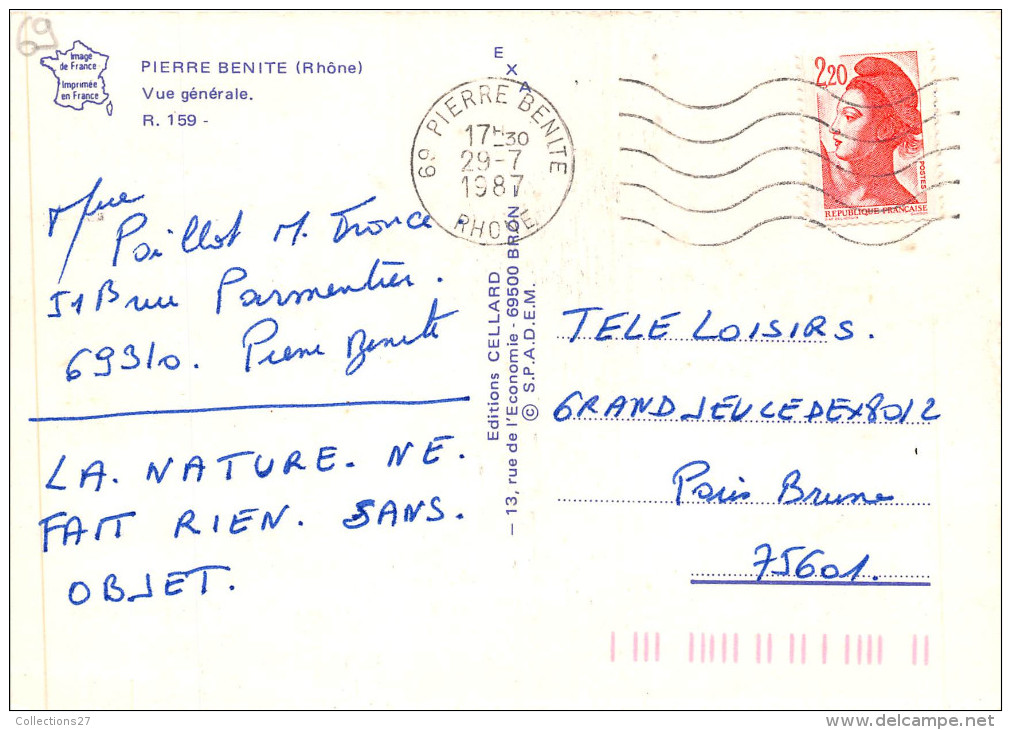 69
Image
de France
Imprimée
en France
PIERRE BENITE (Rhône)
Vue générale.
R. 159 -
EXA
69 PIERRE BENITE
17H30
29-7
1987
RHONE
2,20
POSTES
REPUBLIQUE FRANCAISE
Mme
Paillot M. France.
51B rue Parmentier.
69310. Pierre Benite
LA. NATURE. NE.
FAIT RIEN. SANS.
OBJET.
Editions CELLARD
— 13, rue de l'Economie - 69500 BRON
© S.P.A.D.E.M.
TELE LOISIRS.
GRAND JEU CEDEX 8012
Paris Brune
75601.
Collections27
delcampe.net